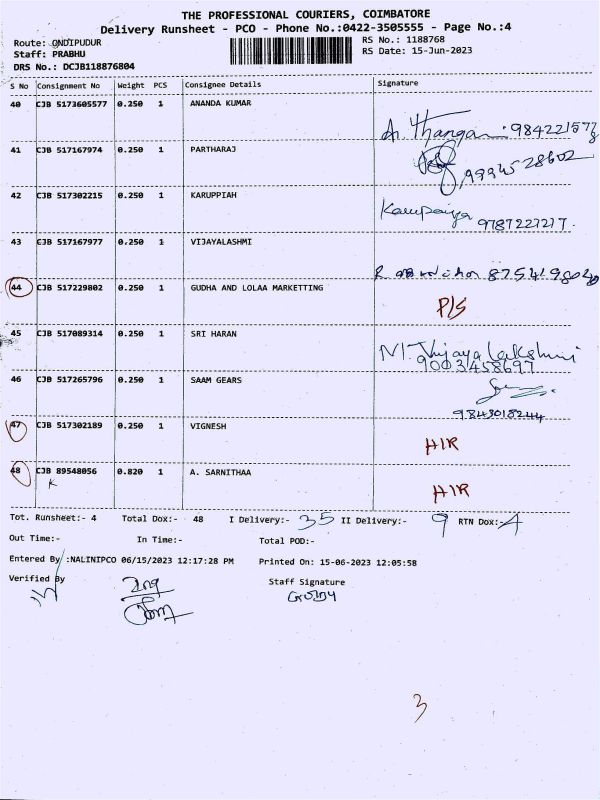 THE PROFESSIONAL COURIERS, COIMBATORE
Delivery Runsheet - PCO - Phone No.:0422-3505555 - Page No.:4
Route: ONDIPUDUR RS No.: 1188768
Staff: PRABHU RS Date: 15-Jun-2023
DRS No.: DCJB118876804
S No Consignment No Weight PCS Consignee Details Signature
40 CJB 5173605577 0.250 1 ANANDA KUMAR
A. Thangam: 9842215778
41 CJB 517167974 0.250 1 PARTHARAJ
9994528602
42 CJB 517302215 0.250 1 KARUPPIAH
9787227217.
43 CJB 517167977 0.250 1 VIJAYALASHMI
44 CJB 517229802 0.250 1 GUDHA AND LOLAA MARKETTING
P/S
45 CJB 517089314 0.250 1 SRI HARAN
M. Vijaya Lakshmi
9003458697
46 CJB 517265796 0.250 1 SAAM GEARS
9843018244
47 CJB 517302189 0.250 1 VIGNESH
H/R
48 CJB 89548056 0.820 1 A. SARNITHAA
K
H/R
Tot. Runsheet:- 4 Total Dox:- 48 I Delivery:- 35 II Delivery:- 9 RTN Dox:- 4
Out Time:- In Time:- Total POD:-
Entered By :NALINIPCO 06/15/2023 12:17:28 PM Printed On: 15-06-2023 12:05:58
Verified By Staff Signature
3